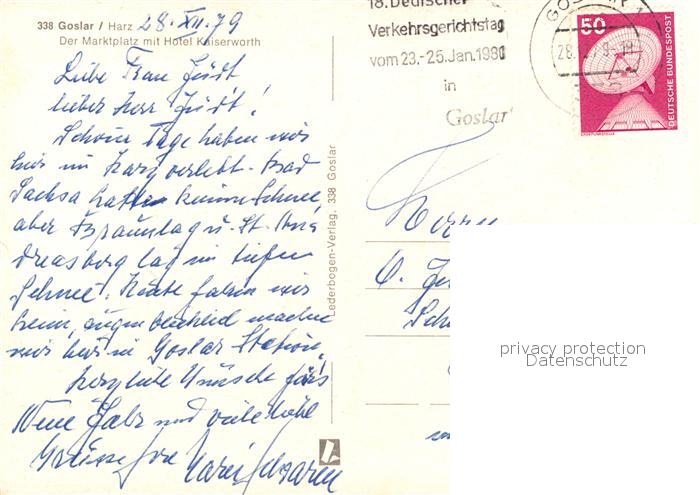 338 Goslar / Harz 28. XII. 79
Der Marktplatz mit Hotel Kaiserworth
Liebe Frau Judt
lieber Herr Judt!
Schöne Tage haben wir
hier im Harz verlebt. Bad
Sachsa hatte keinen Schnee,
aber Braunlag u. St. An
dreasberg lag im tiefen
Schnee. Heute fahren wir
heim, augenblicklich machen
wir hier in Goslar Station,
herzliche Wünsche fürs
Neue Jahr und viele
Grüsse
Lederbogen-Verlag, 338 Goslar
18. Deutscher
Verkehrsgerichtstag
vom 23.-25. Jan. 1980
in
Goslar
GOSLAR 1
28.
50
DEUTSCHE BUNDESPOST
ERDEFUNKSTELLE
Herrn
privacy protection
Datenschutz